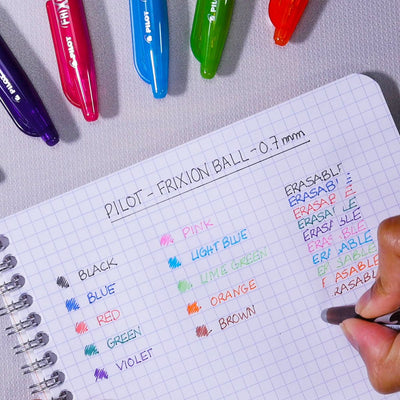 PILOT
FRIXION
PILOT
PILOT
PILOT
PILOT - FRIXION BALL - 0.7mm
BLACK
BLUE
RED
GREEN
VIOLET
PINK
LIGHT BLUE
LIME GREEN
ORANGE
BROWN
ERASABLE
ERASABLE
ERASABLE
ERASABLE
ERASABLE
ERASABLE
ERASABLE
ERASABLE
ERASABLE
ERASABLE